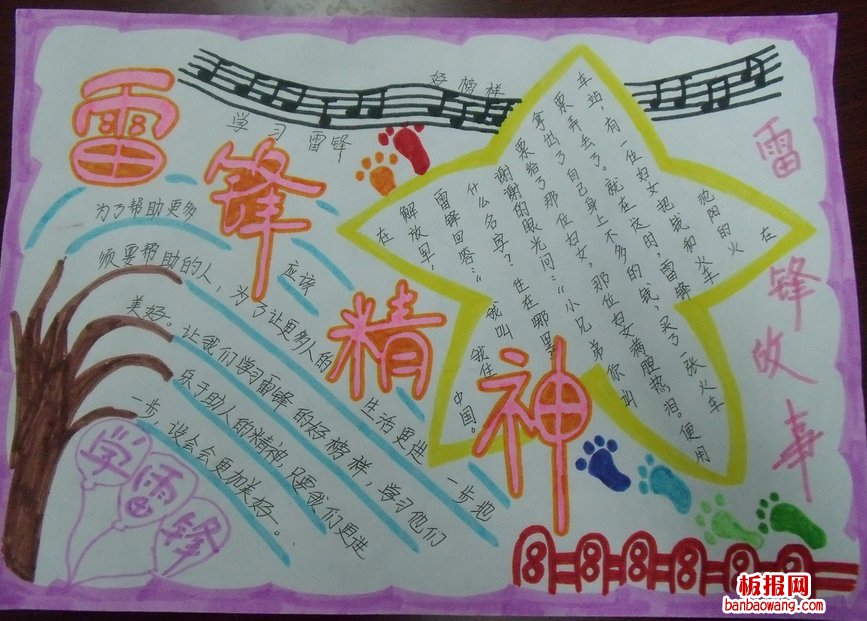 雷锋精神
学习雷锋
好榜样
为了帮助更多
应该
须要帮助的人，为了让更多人的生活更进一步地
美好。让我们学习雷锋的好榜样，学习他们
乐于助人的精神，只要我们更进
一步，设会会更加美好。
学雷锋
雷锋故事
在
沈阳的火
车站，有一位妇女把钱和火车
票弄去了。就在这时，雷锋
拿出了自己身上不多的钱，买了一张火车
票给了那位妇女，那位妇女满腔热泪。便用
谢谢的眼光问：“小兄弟你叫
什么名字？住在哪里
雷锋回答：“我叫
解放军，我住
在中国。
板报网
banbaowang.com